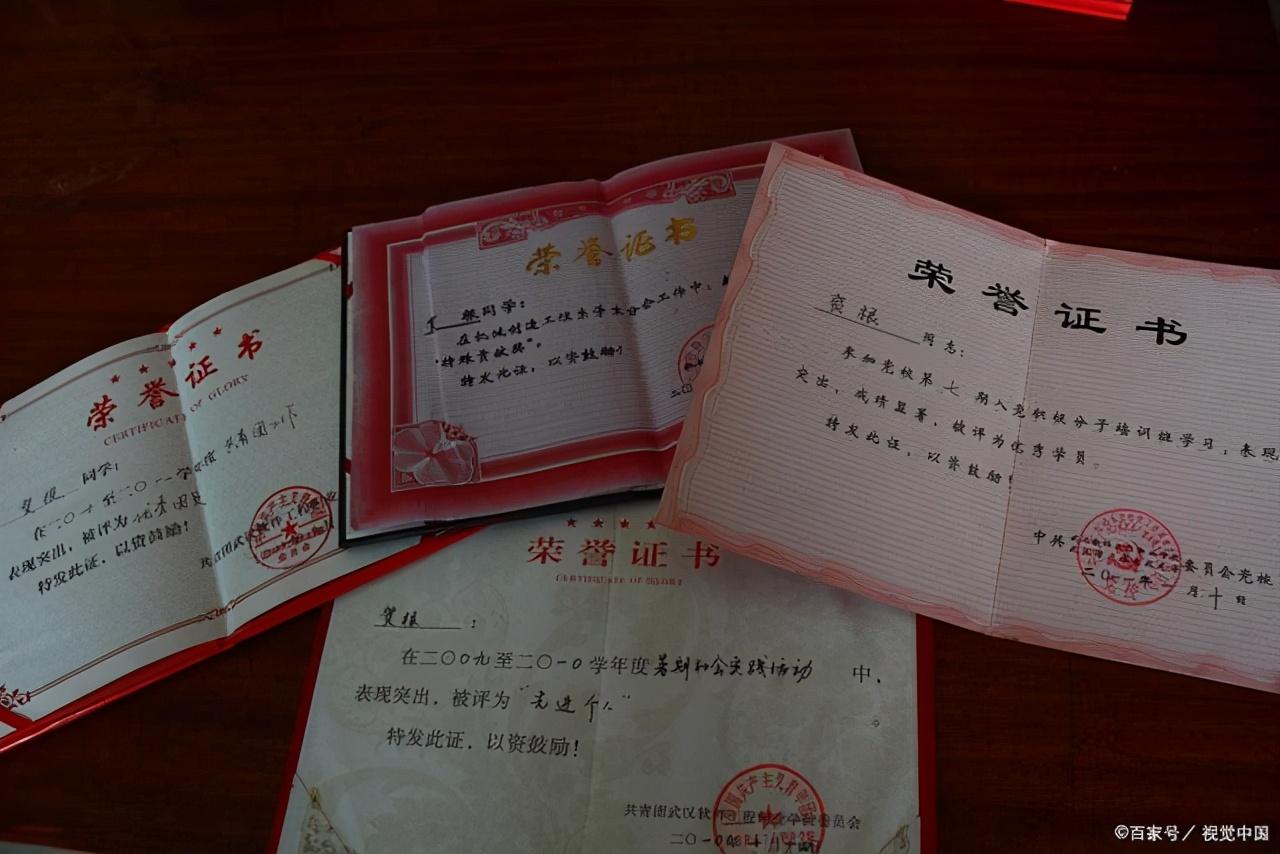 荣誉证书
CERTIFICATE OF GLORY
同学：
在二〇一〇至二〇一一学年度共青团工作
表现突出，被评为优秀团员
特发此证，以资鼓励！
荣誉证书
同学：
在机械创造工程系学生分会工作中，
"特殊贡献奖"。
特发此证，以资鼓励
荣誉证书
贺根 同志：
参加党校第七期入党积极分子培训班学习，表现
突出，成绩显著，被评为优秀学员。
特发此证，以资鼓励
中共 委员会党校
二〇一一年 月十日
荣誉证书
CERTIFICATE OF GLORY
贺根：
在二〇〇九至二〇一〇学年度暑期社会实践活动 中，
表现突出，被评为"先进个人"
特发此证，以资鼓励！
共青团武汉软件工程 委员会
二〇一〇年十
©百家号／视觉中国